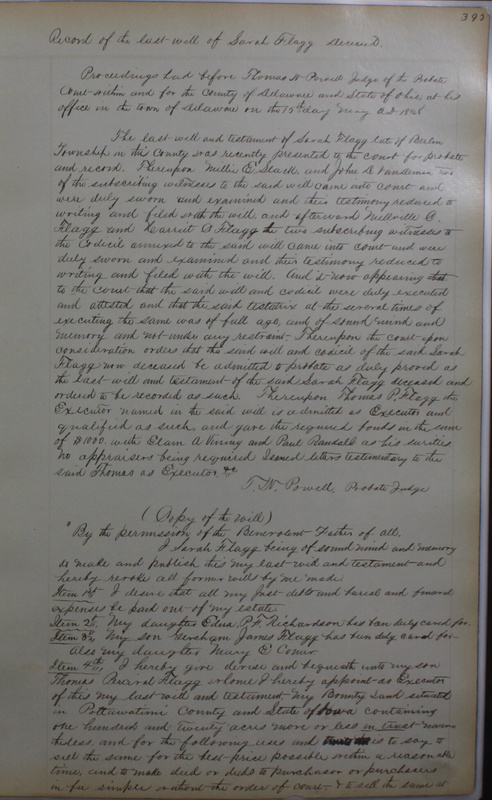 392
Record of the last will of Sarah Flagg Deceas'D.
Proceedings had before Thomas W Powell Judge of the Probate
Court within and for the County of Delaware and State of Ohio, at his
office in the town of Delaware on the 15th day May AD
The last will and testament of Sarah Flagg late of Berlin
Township in this County was recently presented to the court for probate
and record. Thereupon Millie E. Slack, and John D Vandeman two
of the subscribing witnesses to the said will came into court and
were duly sworn and examined and their testimony reduced to
writing and filed with the will, and afterward Millville C.
Flagg and Darrell A Flagg the two subscribing witnesses to
the Codicil annexed to the said will came into court and were
duly sworn and examined and their testimony reduced to
writing and filed with the will. And it now appearing that
to the court that the said will and codicil were duly executed
and attested and that the said testatrix at the several times of
executing the same was of full age, and of sound mind and
memory and not under any restraint. Thereupon the court upon
consideration orders that the said will and codicil of the said Sarah
Flagg now deceased be admitted to probate as duly proved as
the last will and testament of the said Sarah Flagg deceased and
ordered to be recorded as such. Thereupon Thomas P. Flagg the
Executor named in the said will is admitted as Executor and
qualified as such, and gave the required bonds in the sum
of $1000. with Elam A Vining and Paul Randall as his sureties
no appraisers being required Issued letters testimentary to the
said Thomas as Executor &c
T. W. Powell, Probate Judge
(Copy of the Will)
"By the permission of the Benevolent Father of all,
I Sarah Flagg being of sound mind and memory
do make and publish this my last will and testament and
hereby revoke all former wills by me made
Item 1st I desire that all my just debts and burial and funeral
expenses be paid out of my estate
Item 2d, My daughter P. F. Richardson has ban duly cared for.
Item 3d, My son Gersham James Flagg has ban duly cared for
also my daughter Mary E
Item 4th, I hereby give devise and bequeath unto my son
Thomas Flagg whome I hereby appoint as Executor
of this my last will and testament, my Bounty Land situated
in Pottawatimi County and State of Iowa containing
one hundred and twenty acres more or less in trust never
theless, and for the following uses and to say to
sell the same for the best price possible within a reasonable
time, and to make deed or deeds to purchasor or purchasers
in fee simple without the order of court & to sell the same at